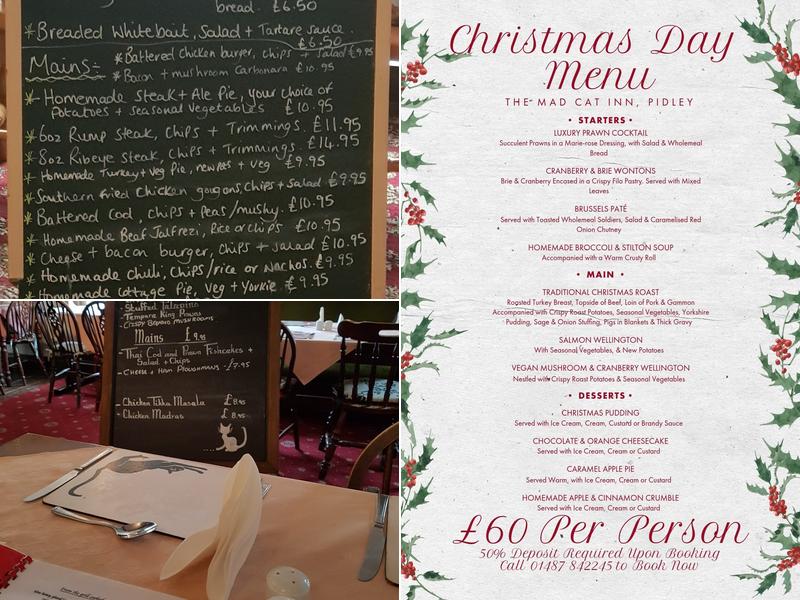 bread. £6.50
*Breaded Whitebait, Salad + Tartare sauce.
£6.50
Mains:- *Battered Chicken burger, chips + Salad £9.95
*Bacon + mushroom Carbonara £10.95
* Homemade Steak + Ale Pie, your choice of
Potatoes + seasonal vegetables £10.95
*6oz Rump Steak, Chips + Trimmings. £11.95
*8oz Ribeye Steak, Chips + Trimmings. £14.95
*Homemade Turkey + Veg Pie, new pots + veg £9.95
*Southern fried Chicken goujons, Chips + Salad £9.95
*Battered Cod, Chips + Peas/mushy. £10.95
*Homemade Beef Jalfrezi, Rice or Chips £10.95
*Cheese + bacon burger, Chips + Salad £10.95
*Homemade chilli, Chips/rice or Nachos. £9.95
*Homemade Cottage Pie, Veg + Yorkie. £9.95
- Stuffed Jalapeno
- Tempura King Prawns
- Crispy Breaded Mushrooms
Mains £9.95
- Thai Cod and Prawn Fishcakes +
Salad + Chips
- Cheese + Ham Ploughmans - £7.95
- Chicken Tikka Masala £8.95
- Chicken Madras £8.95
Christmas Day
Menu
THE MAD CAT INN, PIDLEY
• STARTERS •
LUXURY PRAWN COCKTAIL
Succulent Prawns in a Marie-rose Dressing, with Salad & Wholemeal
Bread
CRANBERRY & BRIE WONTONS
Brie & Cranberry Encased in a Crispy Filo Pastry, Served with Mixed
Leaves
BRUSSELS PATÉ
Served with Toasted Wholemeal Soldiers, Salad & Caramelised Red
Onion Chutney
HOMEMADE BROCCOLI & STILTON SOUP
Accompanied with a Warm Crusty Roll
• MAIN •
TRADITIONAL CHRISTMAS ROAST
Roasted Turkey Breast, Topside of Beef, Loin of Pork & Gammon
Accompanied with Crispy Roast Potatoes, Seasonal Vegetables, Yorkshire
Pudding, Sage & Onion Stuffing, Pigs in Blankets & Thick Gravy
SALMON WELLINGTON
With Seasonal Vegetables, & New Potatoes
VEGAN MUSHROOM & CRANBERRY WELLINGTON
Nestled with Crispy Roast Potatoes & Seasonal Vegetables
• DESSERTS •
CHRISTMAS PUDDING
Served with Ice Cream, Cream, Custard or Brandy Sauce
CHOCOLATE & ORANGE CHEESECAKE
Served with Ice Cream, Cream or Custard
CARAMEL APPLE PIE
Served Warm, with Ice Cream, Cream or Custard
HOMEMADE APPLE & CINNAMON CRUMBLE
Served with Ice Cream, Cream or Custard
£60 Per Person
50% Deposit Required Upon Booking
Call 01487 842245 to Book Now